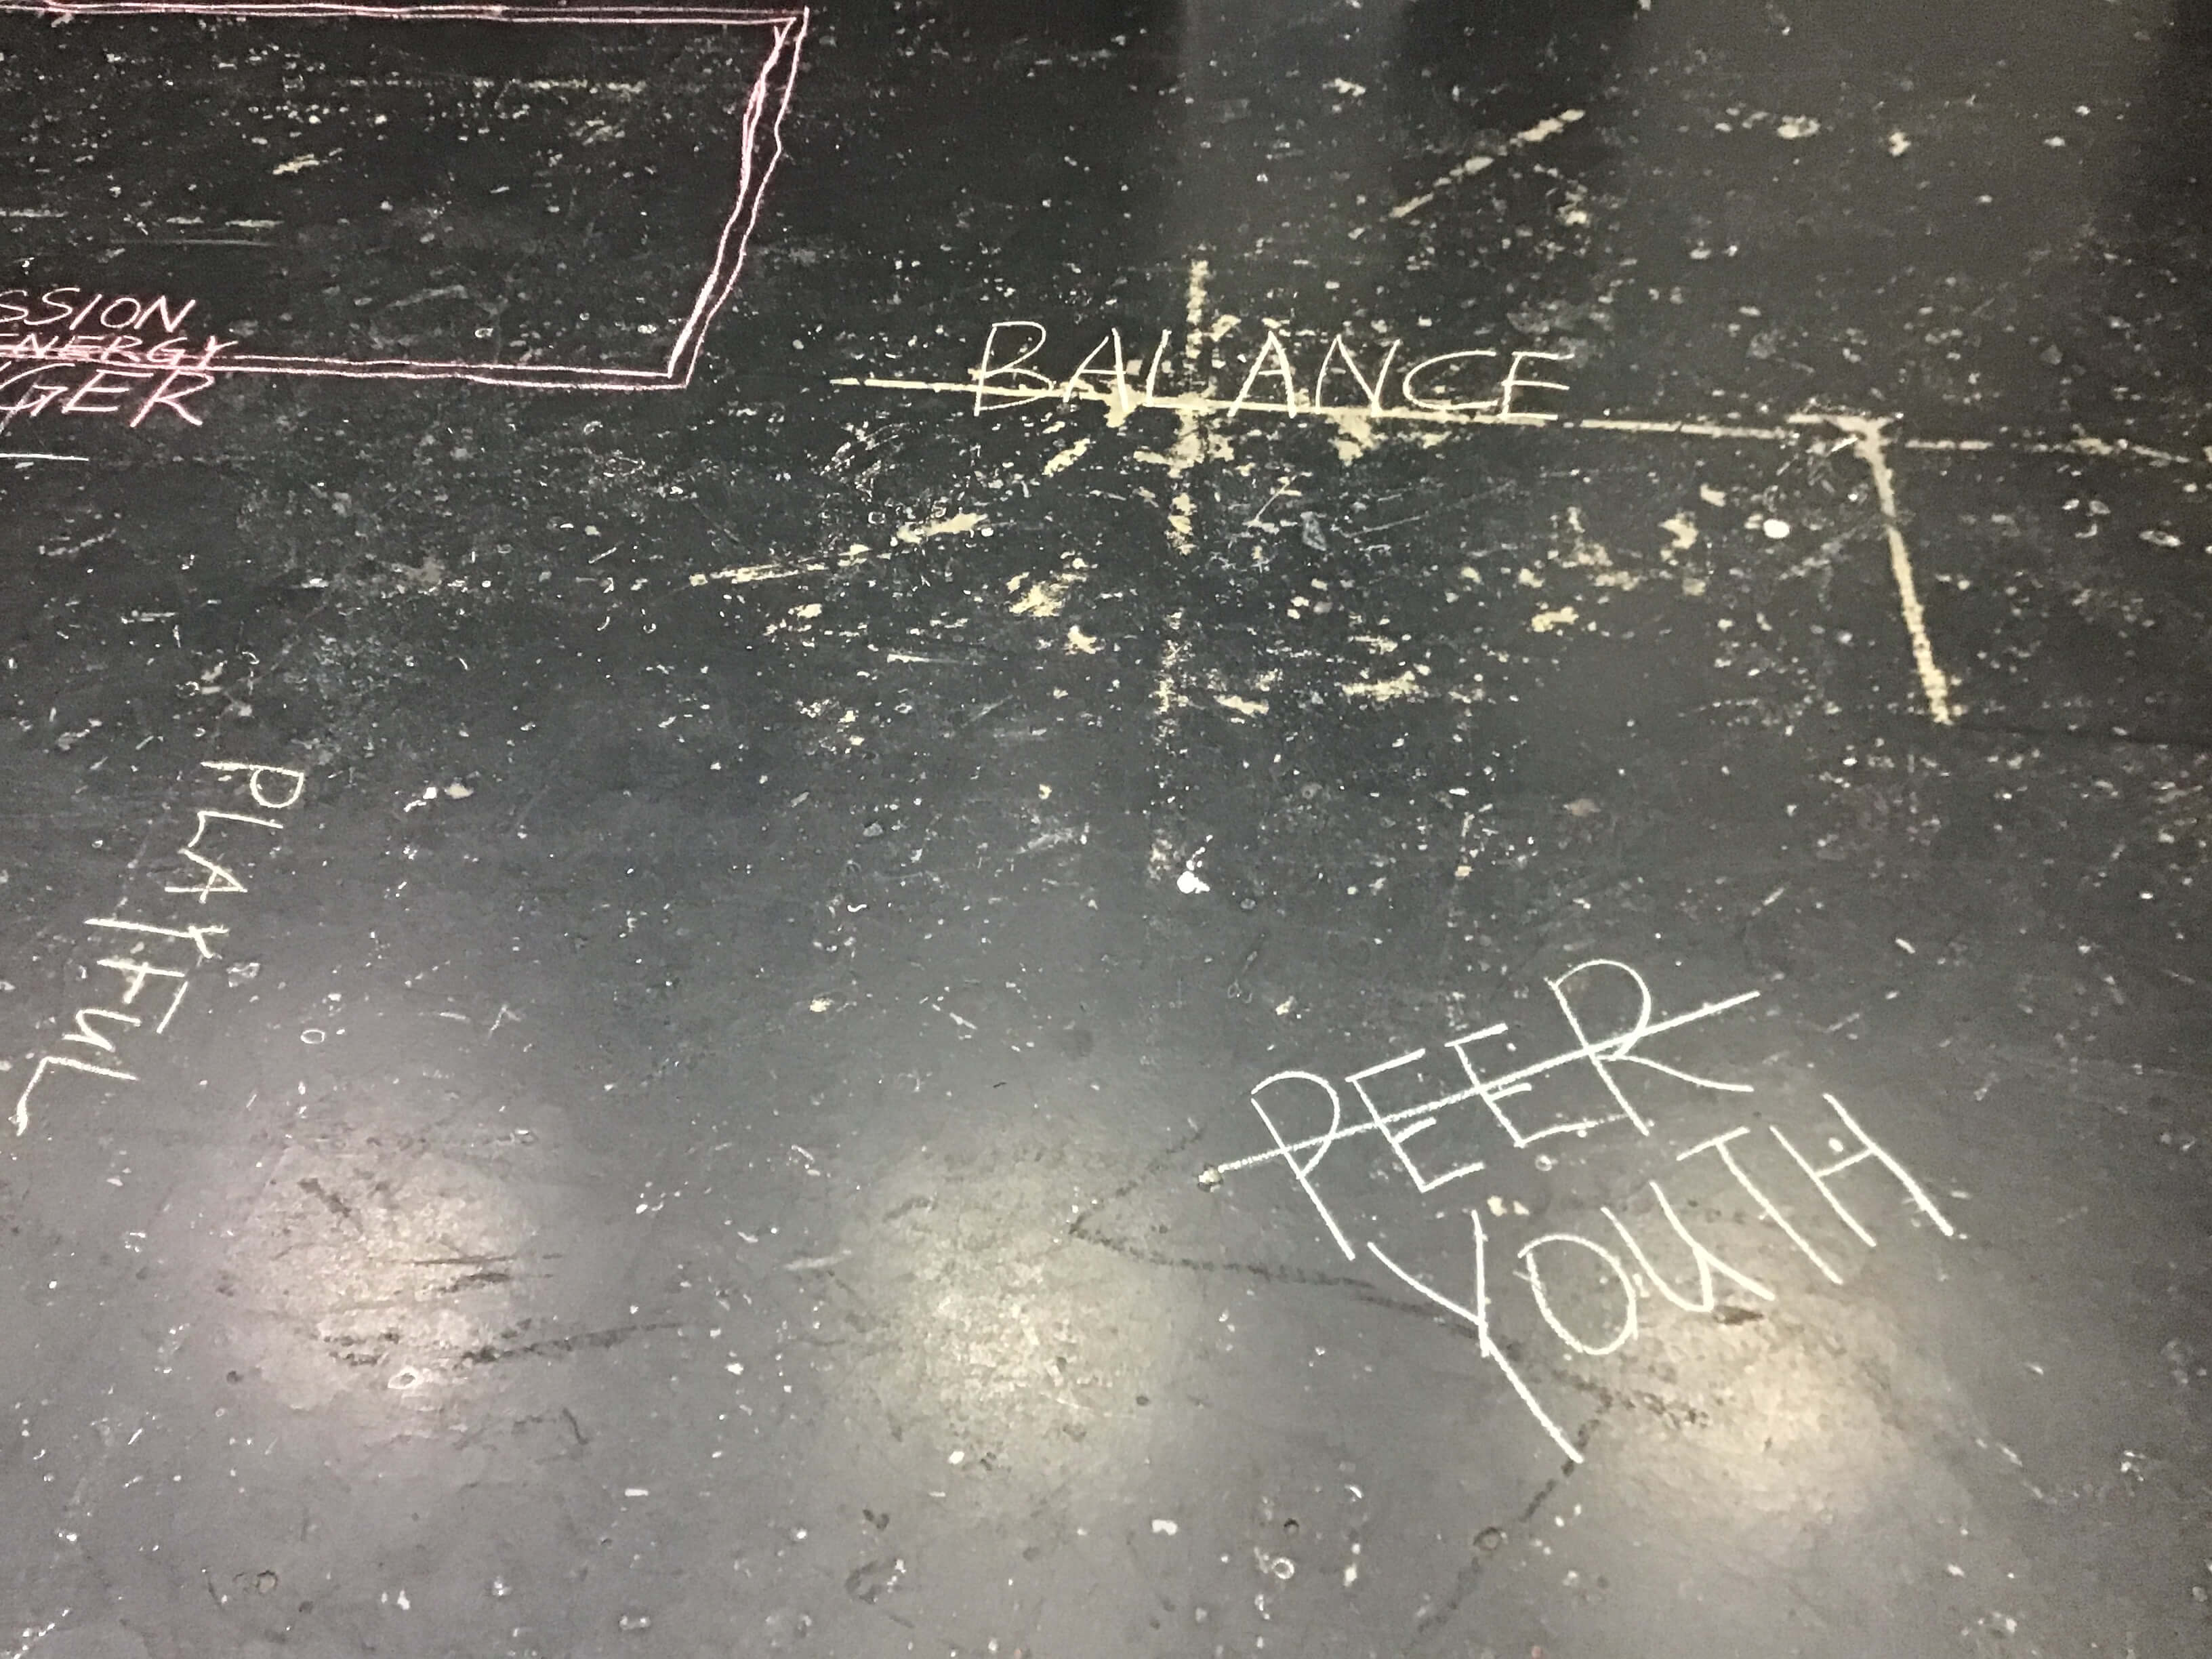 SSION
ENERGY
GER
BALANCE
PLAYFUL
PEER
YOUTH